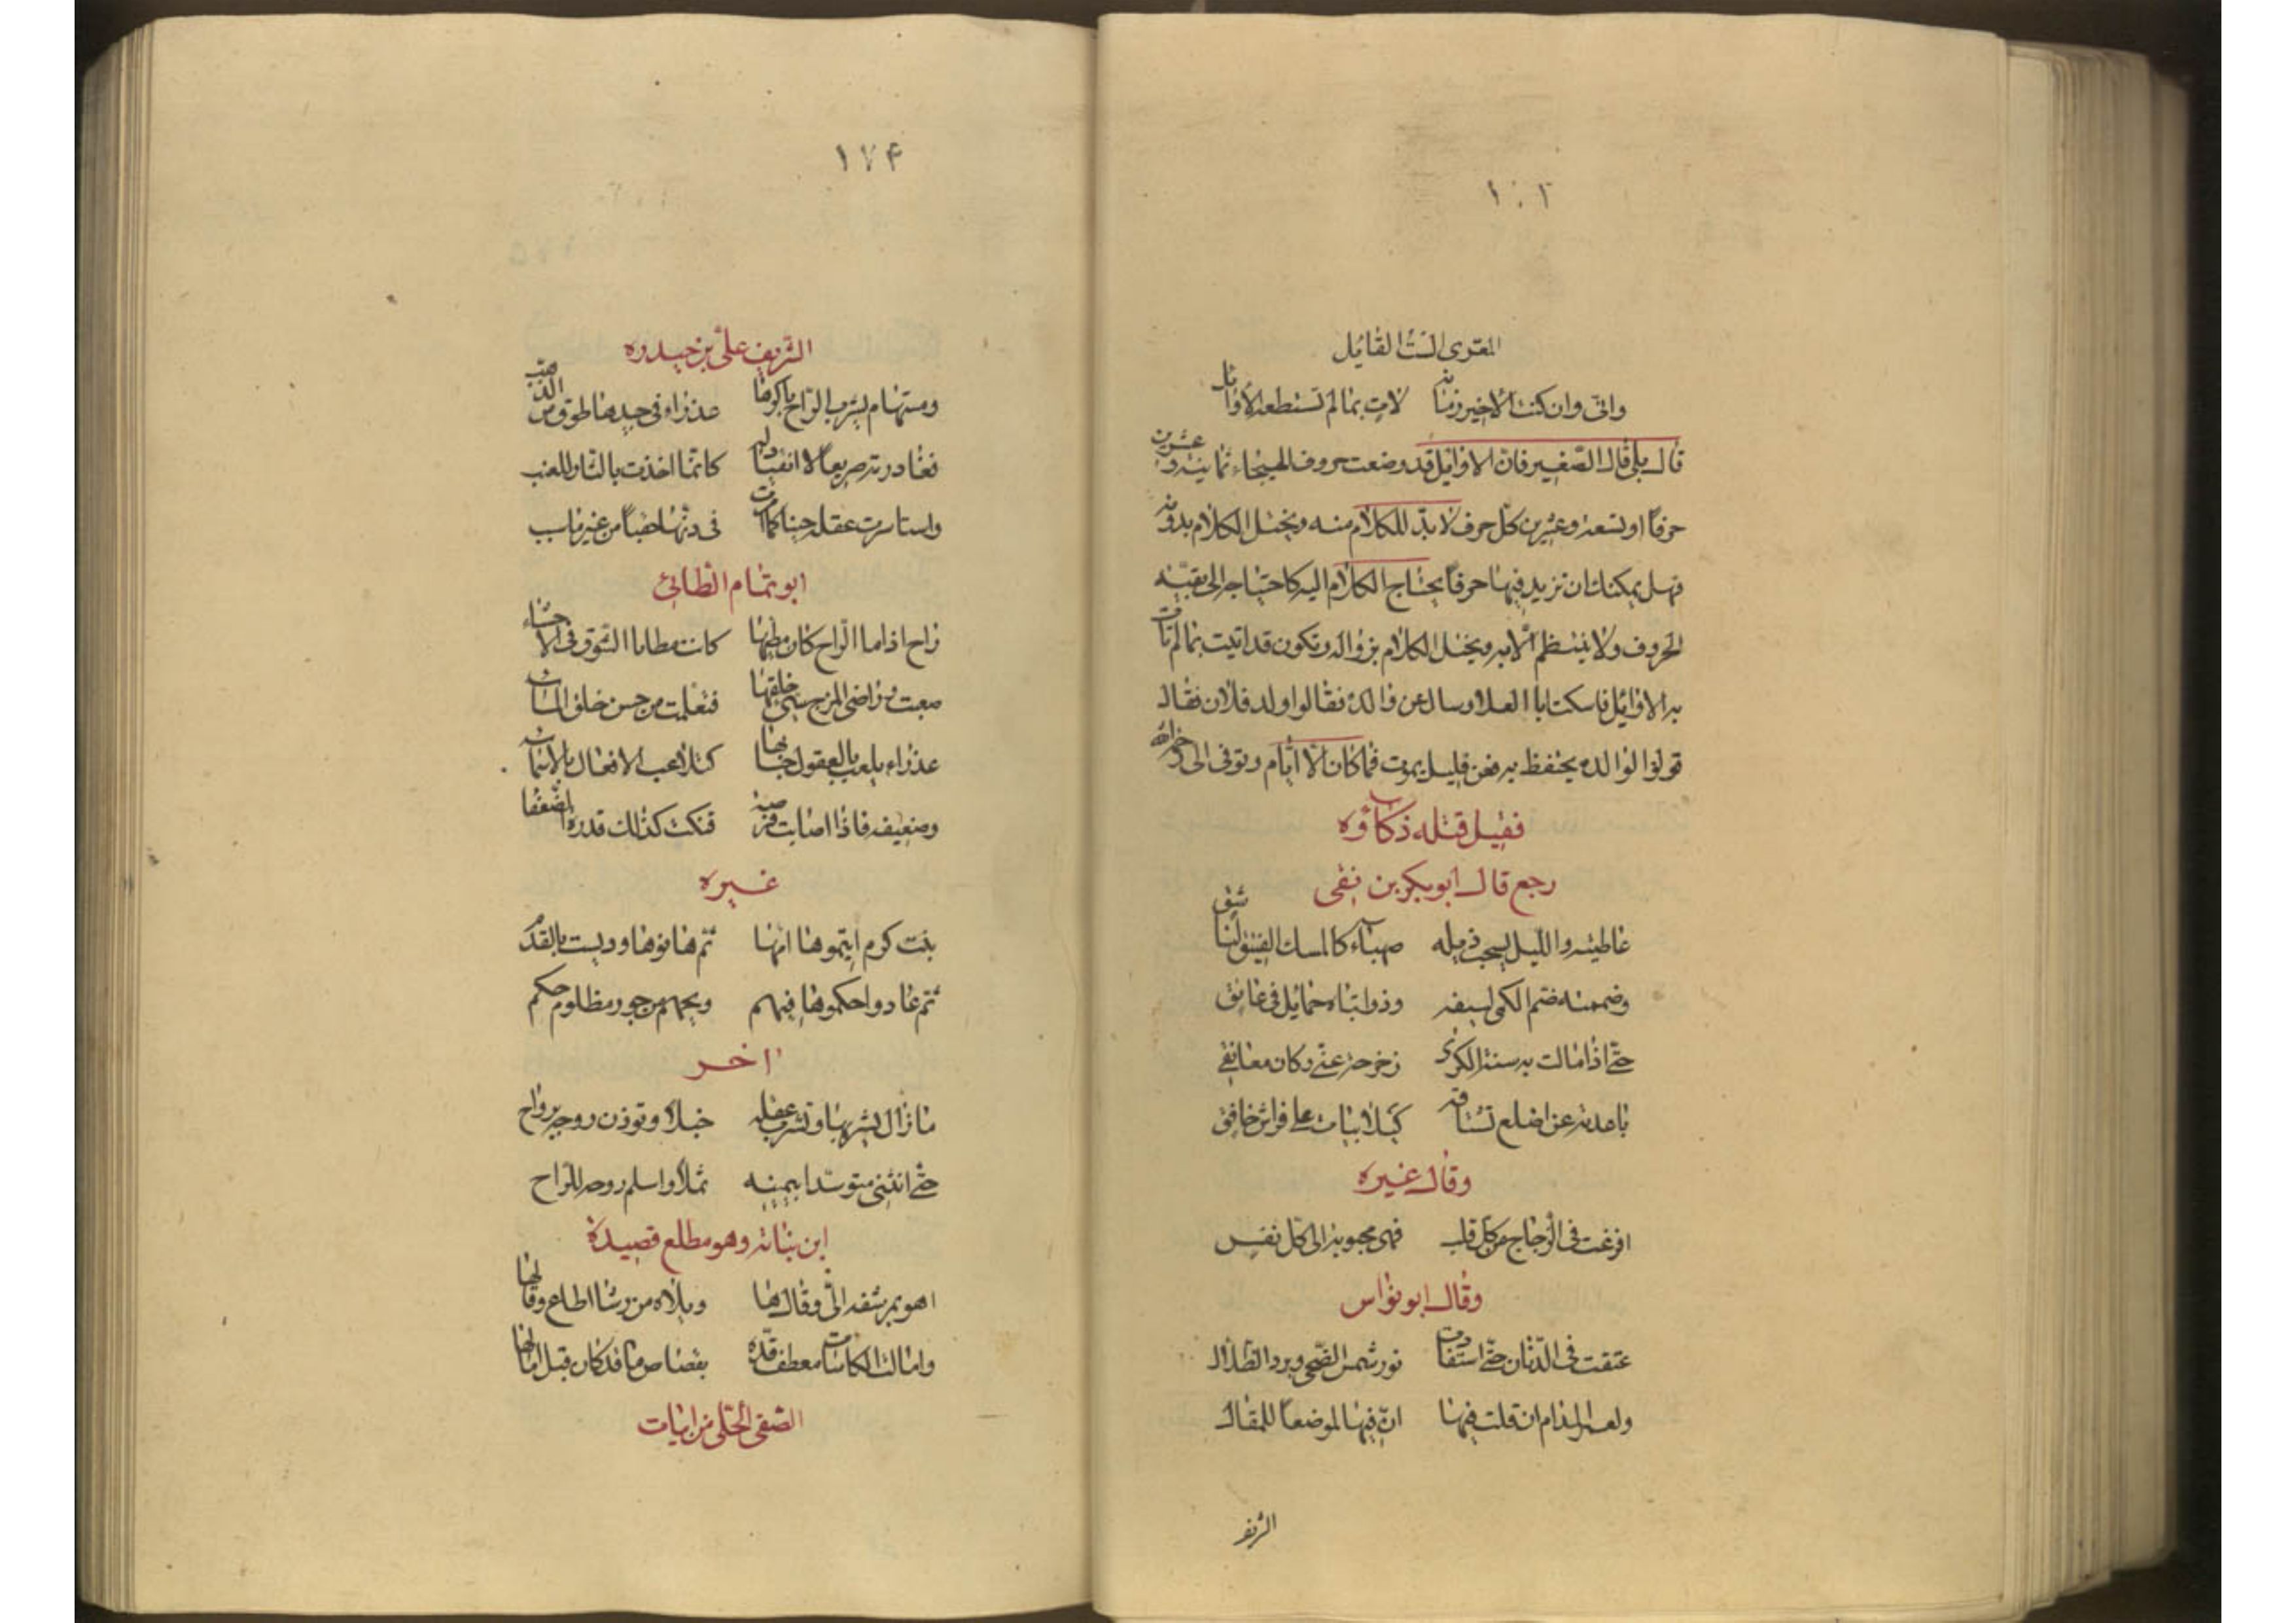 ١٠٢
المعرى الست القائل
وانى وان كنت الاخير زمانه لات بمالم تستطعه الاوائل
قال بلى قال الصغير فان الاوايل قد وضعت حروف الهيجاء ثمانية وعشرين
حرفا او تسعة وعشرين كل حرف لا بد للكلام منه ويختل الكلام بدونه
فهل يمكنك ان تزيد فيها حرفا يحتاج الكلام اليه كاحتياجه الى بقية
الحروف ولا ينتظم الا به ويختل الكلام بزواله وتكون قد اتيت بمالم تات
به الاوائل فاسكت ابا العلا وسال عن والده فقالوا ولد فلان فقال
قولوا لوالده يحتفظ به فعن قليل يموت فما كان الا ايام وتوفى الى رحمة الله
فقيل قتله ذكاؤه
رجع قال ابو بكر بن نقى
عاطيته والليل يسحب ذيله صهباء كالمسك الفتيق لناشق
وضممته ضم الكمى لسيفه وذوابتاه حمايل فى عاتق
حتى اذا مالت به سنة الكرى زحزحته عنى وكان معانقى
باعدته عن اضلع تشتاقه كيلا يبات على فراش خافق
وقال غيره
افرغت فى الزجاج من كل قلب فهى محبوبة الى كل نفس
وقال ابو نواس
عتقت فى الدنان حتى استفادت نور شمس الضحى وبرد الظلال
ولعمر المدام ان قلت فيها ان فيها لموضعا للمقال
الشريف
١٧۴
الشريف على بن حيدره
ومستهام بشرب الراح باكرها عذراء فى جيدها طوق من الذهب
فغادرته صريعا لا انقياد له كانما اخذت بالثار للعنب
واستاسرت عقله حينا كما اسرت فى دنها حقبا من غير ما سبب
ابو تمام الطائى
راح اذا ما الراح كان مطيها كانت مطايا الشوق فى الاحشاء
صعبت وراض المزج سيئ خلقها فتعلمت من حسن خلق الماء
عذراء يلعب بالعقول حبابها كتلاعب الافعال بالاسماء
وضعيفه فاذا اصابت فرصة فتكت كذلك قدرة الضعفا
غيره
بنت كرم ايتموها امها ثم هانوها ودوست بالقدم
ثم عادوا احكموها فيهم ويحهم من جور مظلوم حكم
اخر
ما زال يشربها وتشرب عقله خبلا وتوذن روحه برواح
حتى انثنى متوسدا بيمينه ثملا واسلم روحه للراح
ابن نباته وهو مطلع قصيدة
اهوى بمرشفه الى وقال ها ويلاه من رشا اطاع وقالها
وامالت الكاسات معطف قده بقصاص ما قد كان قبل امالها
الصفى الحلى من ابيات